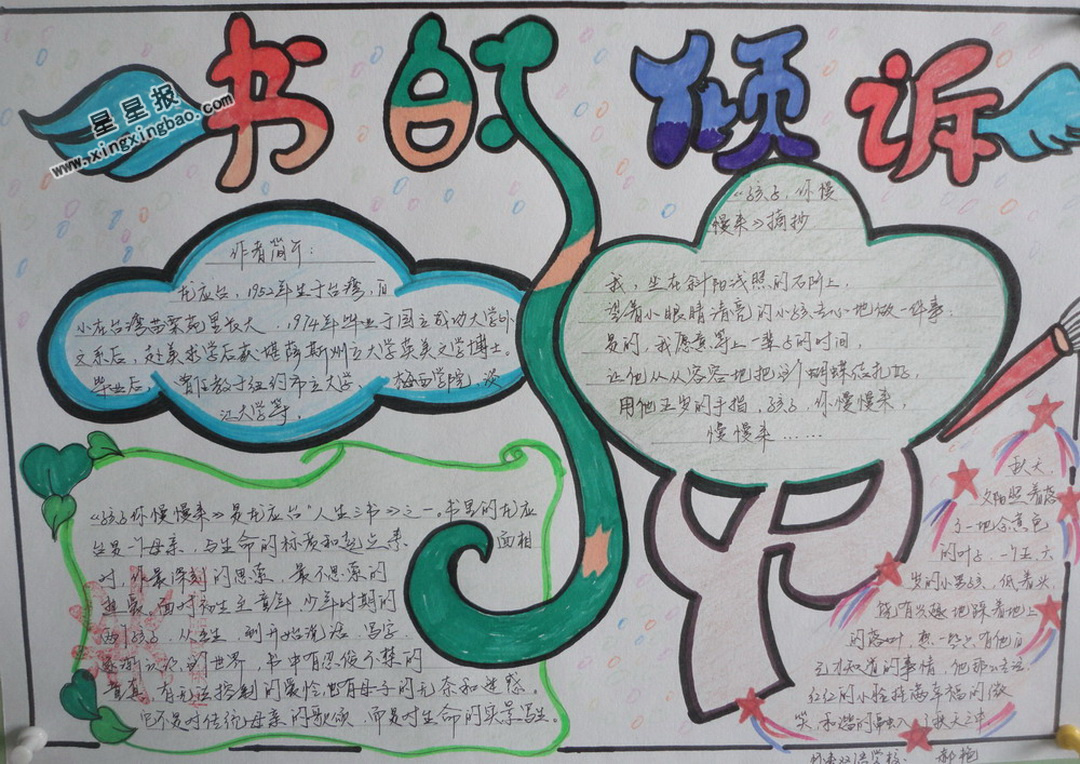 书的倾诉
星星报
www.xingxingbao.com
作者简介：
龙应台，1952年生于台湾，自
小在台湾苗栗苑里长大，1974年毕业于国立成功大学外
文系后，赴美求学后获堪萨斯州立大学英美文学博士。
毕业后，曾任教于纽约市立大学、梅西学院，淡
江大学等。
《孩子，你慢
慢来》摘抄
我，坐在斜阳浅照的石阶上，
望着小眼睛清亮的小孩专心地做一件事；
是的，我愿意等上一辈子的时间，
让他从从容容地把这个蝴蝶结扎好，
用他五岁的手指，孩子，你慢慢来，
慢慢来……
《孩子你慢慢来》是龙应台"人生三书"之一。书里的龙应
台是一个母亲，与生命的本质和起点素面相
对，作最深刻的思索，最不思索的
面对初生至童年，少年时期的
两个孩子，从出生，到开始说话，写字，
逐渐认识的世界，书中有忍俊不禁的
童真，有无法控制的爱怜，也有母子的无奈和迷惑。
它不是对传统母亲的歌颂，而是对生命的实景写生。
秋天，
夕阳照着落
了一地金黄色
的叶子，一个五、六
岁的小男孩，低着头，
饶有兴趣地踩着地上
的落叶，想一些只有他自
己才知道的事情，他那
红红的小脸挂满幸福的微
笑，和谐的融入了秋天之中
双语学校
郝艳